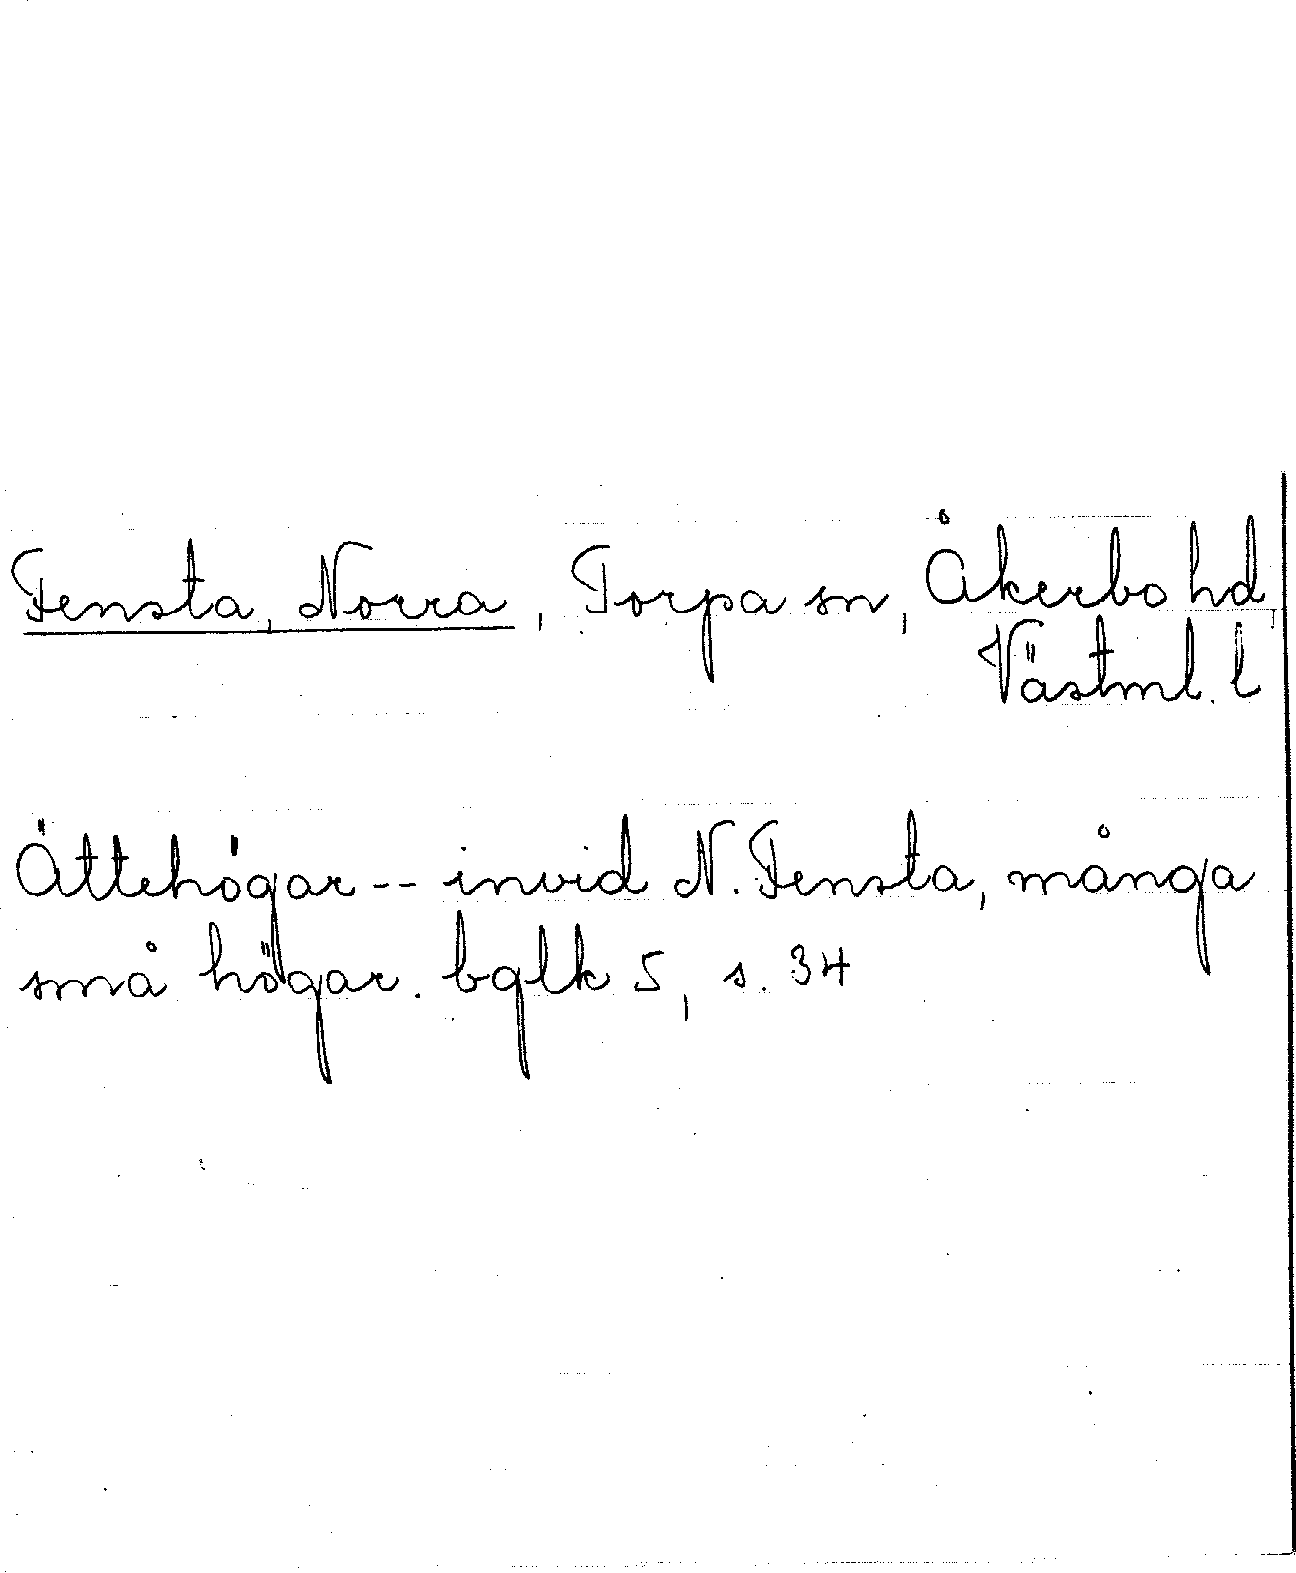 Fensta, Norra, Torpa sn, Åkerbo hd
Västml. l
Ättehögar -- invid N. Fensta, många
små högar. bglk 5, s. 34